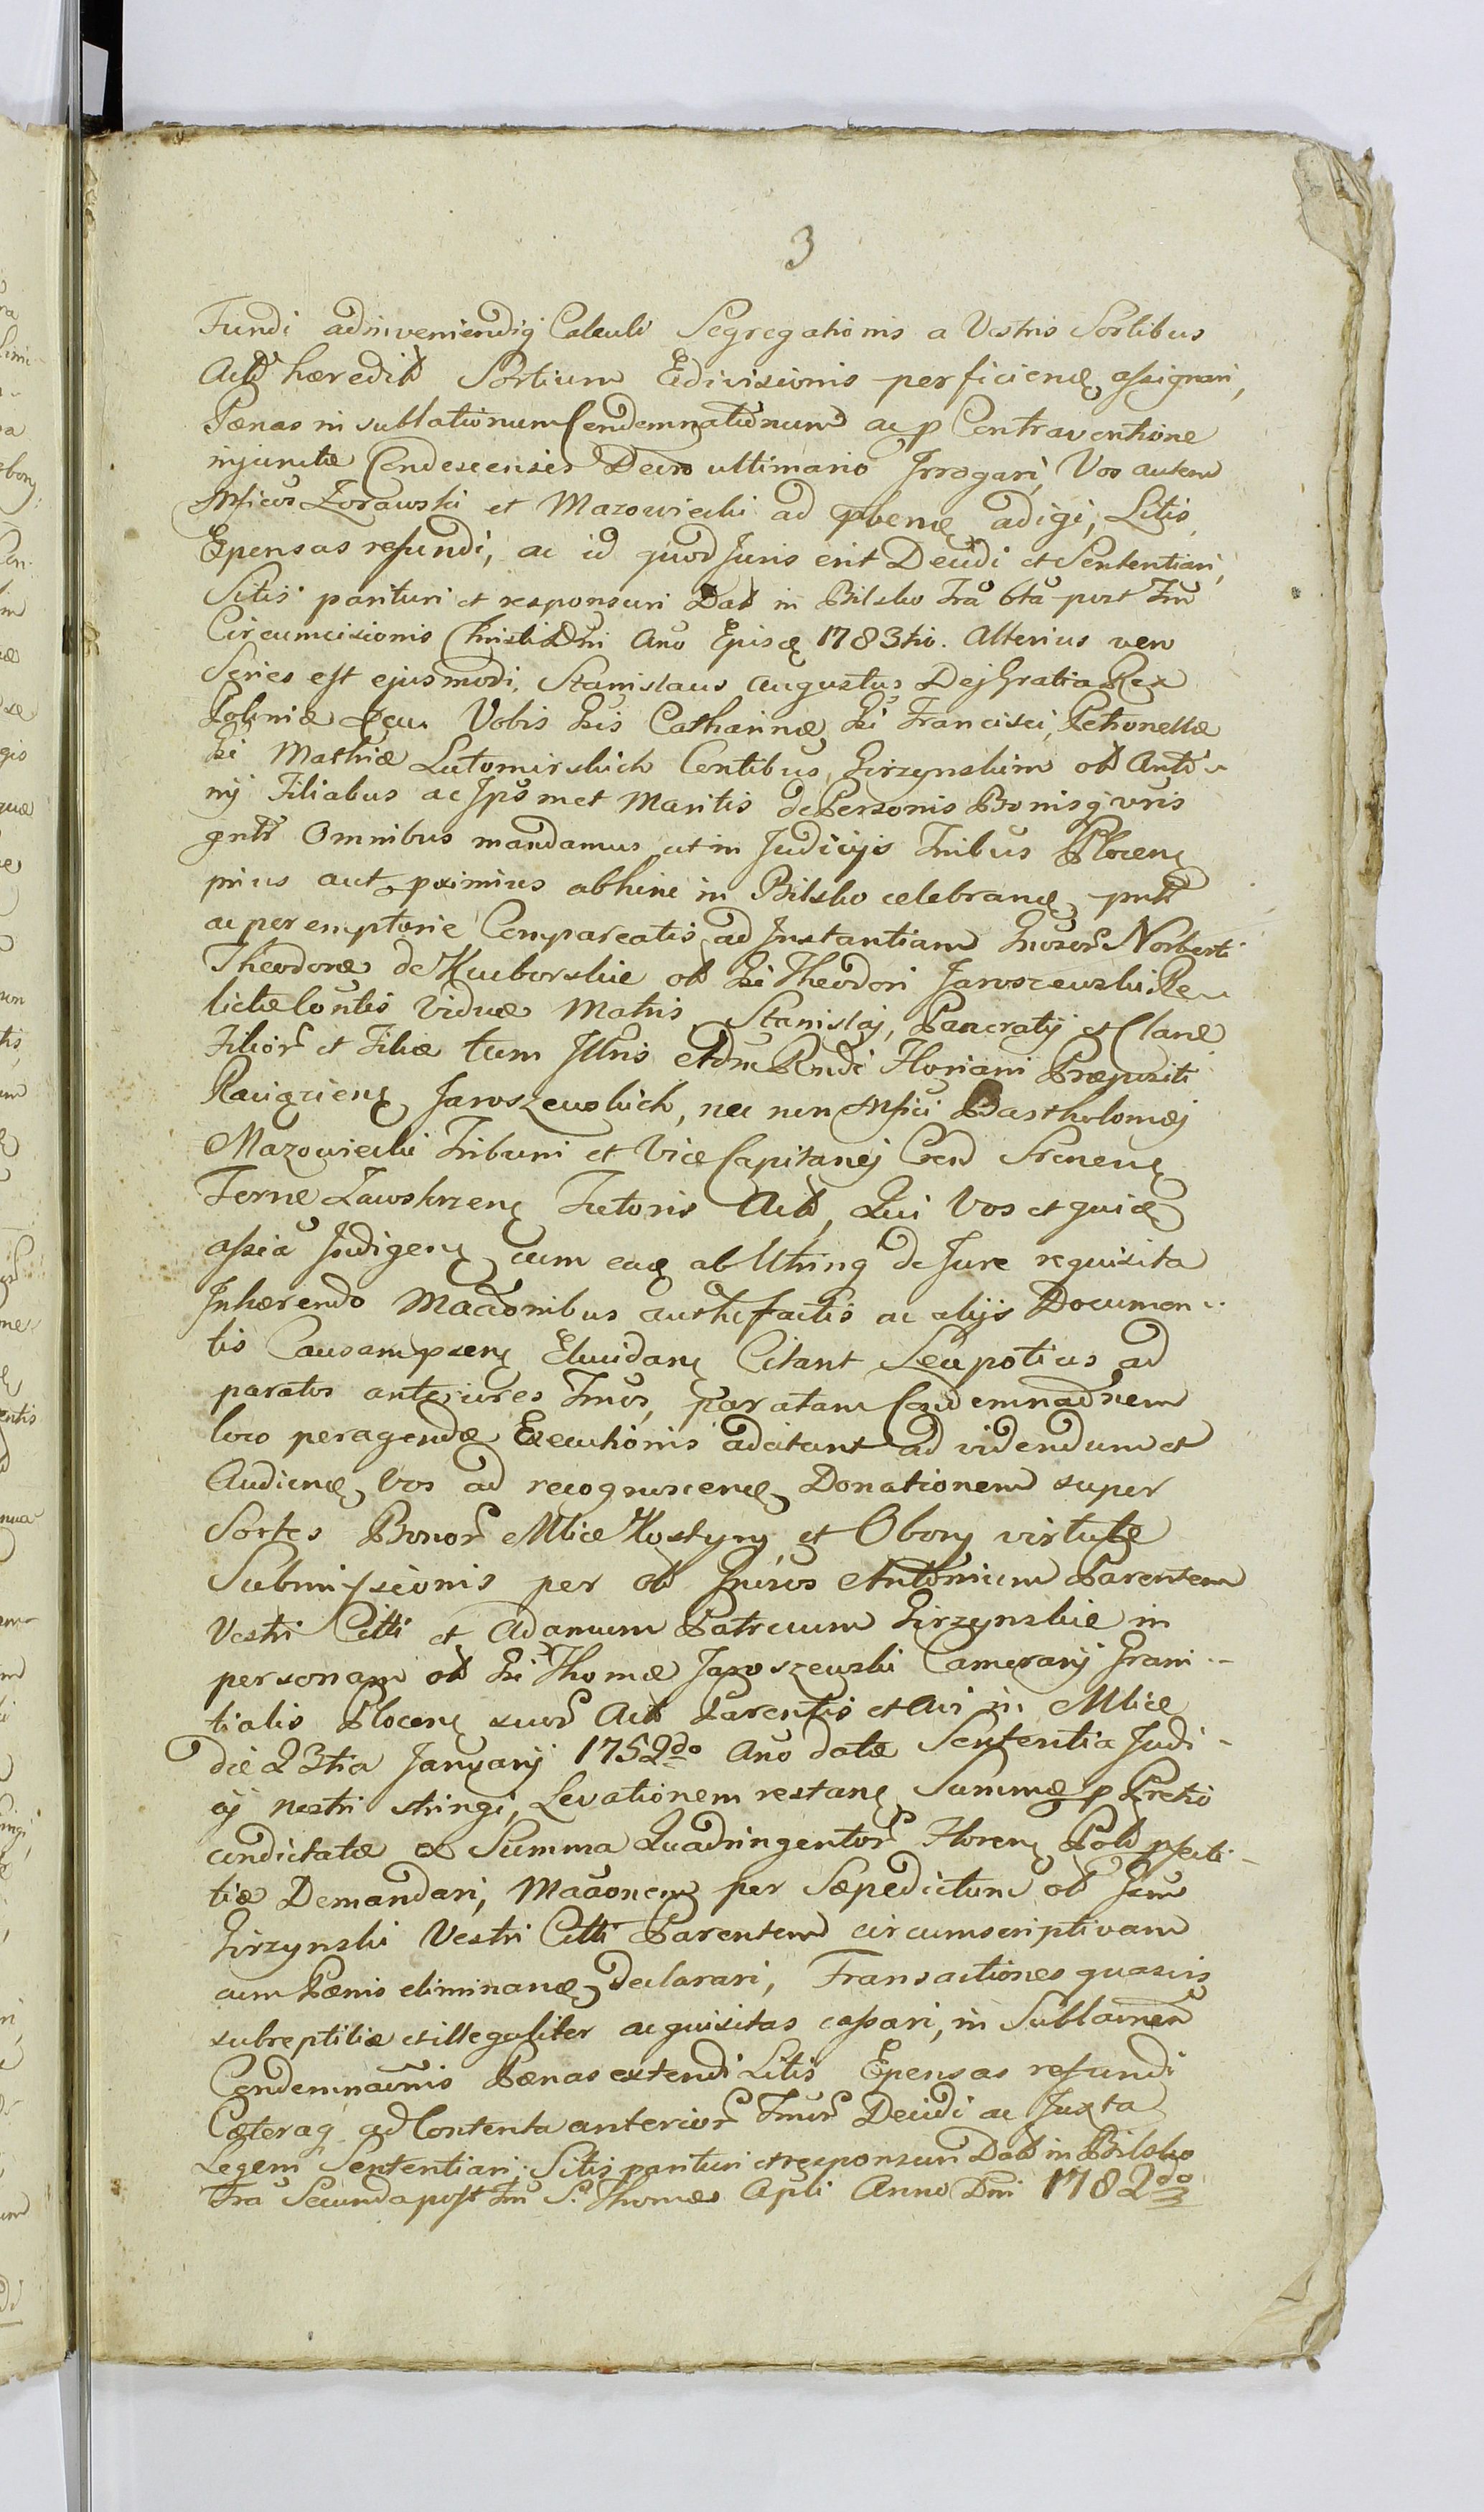 3
Fundi adinveniendiq Calculi Segregationis a Vestris Sortibus
Actõ hæredit Sortium Edivisionis perficienđ assignari,
Pænas in sublationum Condemnationum ac p Contraventione
injunctæ Condescensis Decro ultimario Irrogari, Vos autem
Mficos Zorawski et Mazowiecki ad phenđ adigi, Litis
Expensas refundi, ac id quod Juris erit Decidi et Sententiari,
Sitis parituri et responsuri Dat in Bilsko Fra 6ta post Fm
Circumcisionis Christi Dni Ano Episđ 1783tio. Alterius vero
Series est ejusmodi, Stanislaus Augustus Dej Gratia Rex
Poloniæ &cu. Vobis Gsis Catharinæ, Gsi Francisci, Petronellæ
Gsi Mathiæ Lutomirskich Contibus, Girzynskim olt Anto-
nij Filiabus ac Ipsmet Maritis de Personis Bonisq vris
gntr Omnibus mandamus ut in Judicijs Tribus Plocen
prius aut pximius abhinc in Bilsko celebranđ pntr
ac peremptorie Compareatis ad Instantiam Gnosor Norberti
Theodoræ de Kuborskie olt Gsi Theodori Jaroszewski Re-
lictæ Contis Viduæ Matris, Stanislaj, Pancratij et Claræ
Filior et Filiæ tum Illris et Adm Rndi Floriani Præpositi
Raciązien Jaroszewskich, nec non Mfici Bartholomej
Mazowiecki Tribuni et Vice Capitanej Cren Srenen
Terræ Zawskrzen Tutoris Actõ, Qui Vos et quiđ
assia Indigen cum eađ ab Utrinq de Jure requisita
Inhærendo Maãonibus authe factis ac alijs Documen-
tis Causam psen Elucidan Citant Seu potius ad
paratos anteriores Tmos, paratam Condemnaõnem
loco peragendæ Executionis adcitant ad videndum et
Audienđ Vos ad recognoscenđ Donationem super
Sortes Bonor Mliæ Kostyry et Obory virtute
Submissionis per olt Gnosos Antonium Parentem
Vestri Citti et Adamum Patruum Girzynskie in
personam olt Gsi Thomæ Jaroszewski Camerarij Grani-
tialis Plocen suor Actõ Parentis et Avi in Mlice
die 23tia Januarij 1752do Ano datæ Sententia Judi-
cij nostri stringi, Levationem restan Summæ p Pretio
condictatæ ex Summa Quadringentor Floren Polõ pfecti-
tiæ Demandari, Maãonem per Sæpedictum olt Gsum
Girzynski Vestri Citti Parentem circumscriptivam
cum Pænis eliminanđ declarari, Transactiones quasvis
subreptitiæ et illegaliter acquisitas cassari, in Sublaõnem
Condemnaõnis Pænas extendi Litis Expensas refundi
Cæteraq ad Contenta anterior Tmor Decidi ac Juxta
Legem Sententiari; Sitis parituri et responsuri Dat in Bilsko
Fra Secunda post Fm S. Thomæ Apli Anno Dni 1782do